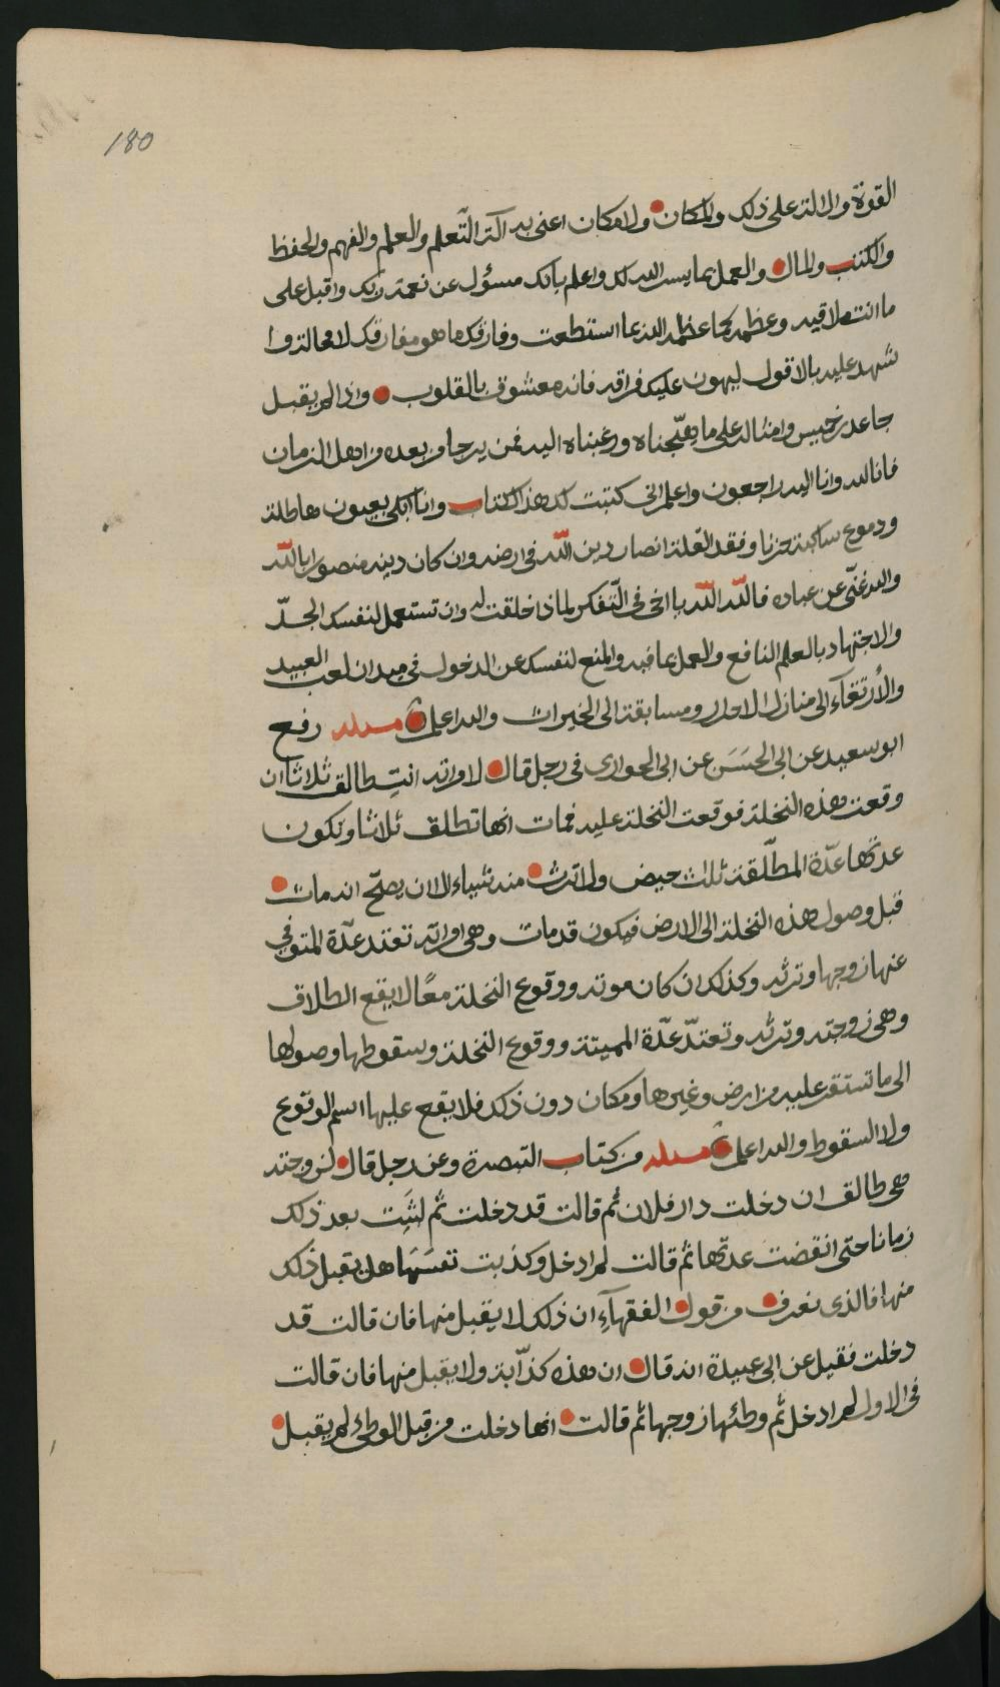 180
القوة والالة على ذلك والمكان والامكان اعنى به آلة التعلم والعلم والفهم والحفظ
والكتب والمال والعمل بما يسر الله لك واعلم بانك مسؤل عن نعمة ربك واقبل على
ما انت ملاقيه وعظمه كما عظمه الله عا استطعت وفارق ما هو مفارقك لا محالة وا
شهد عليه بالاقول ليهون عليك فراقه فانه معشوق بالقلوب واذا لم يقبل
جاعد بن خميس وامثاله على ما يهّجناه ورغبناه اليه فمن يرجا من بعده من اهل الزمان
فانا لله وانا اليه راجعون واعلم انى كتبت لك هذا الكتاب وانا ابكى بعيون هاطلة
ودموع ساكبة حزنا وفقد القلة انصار دين الله فى ارضه وان كان دينه منصورا بالله
والله غنىّ عن عباده فالله الله يا اخى فى التّفكر لماذا خلقت له وان تستعمل لنفسك الجدّ
والاجتهاد بالعلم النافع والعمل بما فيه والمنع لنفسك عن الدخول فى ميدان لعب العبيد
والأرتقآء الى منازل الاحرار ومسابقة الى الخيرات والله اعلم مسئلة رفع
ابو سعيد عن ابى الحسَن عن ابى الحوارى فى رجل قال لامراته انتِ طالق ثلاثا ان
وقعت هذه النخلة فوقعت النخلة عليه فمات انها تطلق ثلاثا وتكون
عدتها عدّة المطلّقة ثلاث حيض ولا ترث منه شيئاء الا ان يصحّ انه مات
قبل وصول هذه النخلة الى الارض فيكون قد مات وهى امراته تعتد عدّة المتوفي
عنها زوجها وترثه وكذلك ان كان موته ووقوع النخلة معًا لا يقع الطلاق
وهى زوجته وترثه وتعتدّ عدّة المميتة ووقوع النخلة وسقوطها وصولها
الى ما تستقر عليه من ارض وغيرها ومكان دون ذلك فلا يقع عليها اسم الوقوع
ولا السقوط والله اعلم مسئلة من كتاب التبصرة وعن رجل قال لزوجته
هى طالق ان دخلت دار فلان ثم قالت قد دخلت ثم لبثت بعد ذلك
زمانا حتى انقضت عدتها ثم قالت لم ادخل وكذبت نفسَهَا هل يقبل ذلك
منها فالذى نعرف من قول الفقهآءِ ان ذلك لا يقبل منها فان قالت قد
دخلت فقيل عن ابى عبيدة انه قال ان هذه كذّابة ولا يقبل منها فان قالت
فى الاول لم ادخل ثم وطئها زوجها ثم قالت انها دخلت من قبل الوطئ لم يقبل